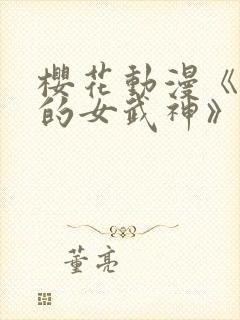 櫻花動漫《
的女武神》
董亮